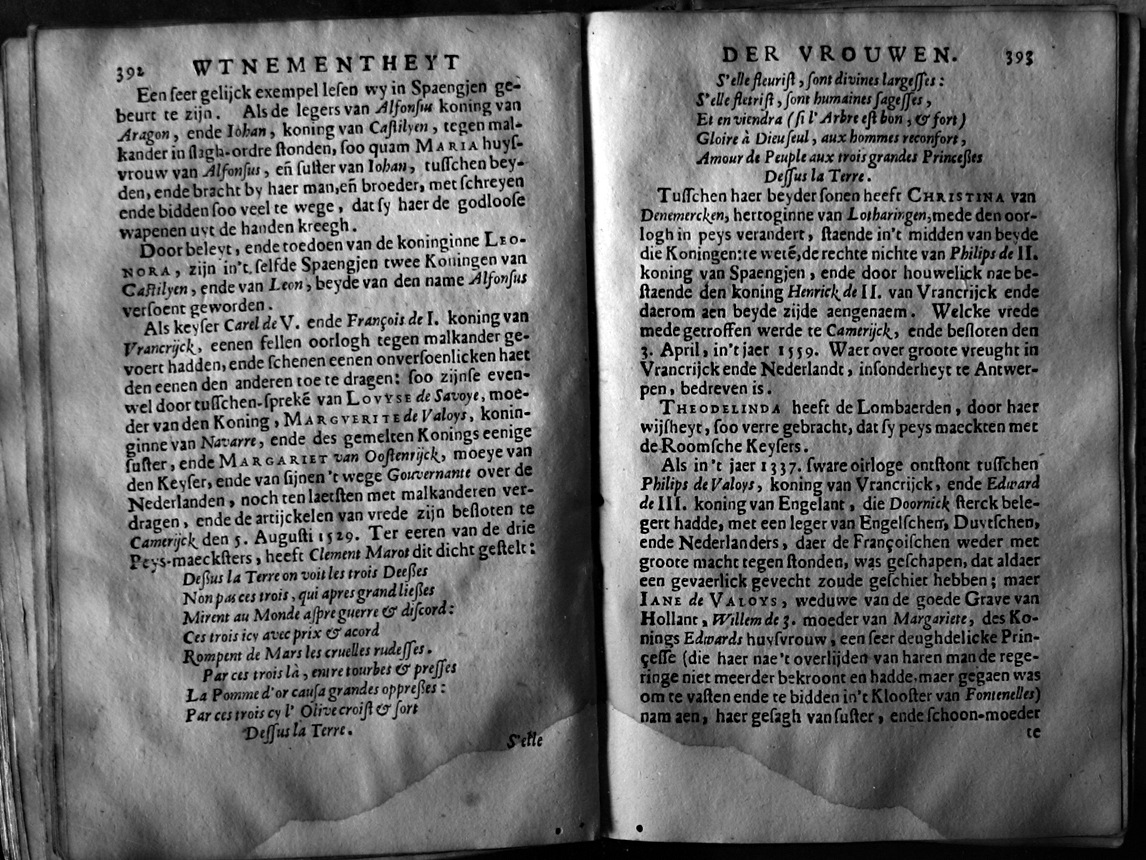 392 WTNEMENTHEYT
Een seer gelijck exempel lesen wy in Spaengjen ge-
beurt te zijn. Als de legers van Alfonsus koning van
Aragon, ende Iohan, koning van Castilyen, tegen mal-
kander in slagh-ordre stonden, soo quam MARIA huys-
vrouw van Alfonsus, eñ suster van Iohan, tusschen bey-
den, ende bracht by haer man, eñ broeder, met schreyen
ende bidden soo veel te wege, dat sy haer de godloose
wapenen uyt de handen kreegh.
Door beleyt, ende toedoen van de koninginne LEO-
NORA, zijn in't selfde Spaengjen twee Koningen van
Castilyen, ende van Leon, beyde van den name Alfonsus
versoent geworden.
Als keyser Carel de V. ende François de I. koning van
Vrancrijck, eenen fellen oorlogh tegen malkander ge-
voert hadden, ende schenen eenen onversoenlicken haet
den eenen den anderen toe te dragen: soo zijnse even-
wel door tusschen-sprekē van LOVYSE de Savoye, moe-
der van den Koning, MARGVERITE de Valoys, konin-
ginne van Navarre, ende des gemelten Konings eenige
suster, ende MARGARIET van Oostenrijck, moeye van
den Keyser, ende van sijnen 't wege Gouvernante over de
Nederlanden, noch ten laetsten met malkanderen ver-
dragen, ende de artijckelen van vrede zijn besloten te
Camerijck den 5. Augusti 1529. Ter eeren van de drie
Peys-maecksters, heeft Clement Marot dit dicht gestelt:
Deßus la Terre on voit les trois Deeßes
Non pas ces trois, qui apres grand ließes
Mirent au Monde aspre guerre & discord:
Ces trois icy avec prix & acord
Rompent de Mars les cruelles rudesses.
Par ces trois là, entre tourbes & presses
La Pomme d'or causa grandes oppreßes:
Par ces trois cy l' Olive croist & sort
Dessus la Terre.
S'elle
DER VROUWEN. 393
S'elle fleurist, sont divines largesses:
S'elle fletrist, sont humaines sagesses,
Et en viendra (si l' Arbre est bon, & fort)
Gloire à Dieu seul, aux hommes reconfort,
Amour de Peuple aux trois grandes Princeßes
Dessus la Terre.
Tusschen haer beyder sonen heeft CHRISTINA van
Denemercken, hertoginne van Lotharingen, mede den oor-
logh in peys verandert, staende in't midden van beyde
die Koningen: te wetē, de rechte nichte van Philips de II.
koning van Spaengjen, ende door houwelick nae be-
staende den koning Henrick de II. van Vrancrijck ende
daerom aen beyde zijde aengenaem. Welcke vrede
mede getroffen werde te Camerijck, ende besloten den
3. April, in't jaer 1559. Waer over groote vreught in
Vrancrijck ende Nederlandt, insonderheyt te Antwer-
pen, bedreven is.
THEODELINDA heeft de Lombaerden, door haer
wijsheyt, soo verre gebracht, dat sy peys maeckten met
de Roomsche Keysers.
Als in 't jaer 1337. sware oirloge ontstont tusschen
Philips de Valoys, koning van Vrancrijck, ende Edward
de III. koning van Engelant, die Doornick sterck bele-
gert hadde, met een leger van Engelschen, Duytschen,
ende Nederlanders, daer de Françoischen weder met
groote macht tegen stonden, was geschapen, dat aldaer
een gevaerlick gevecht zoude geschiet hebben; maer
IANE de VALOYS, weduwe van de goede Grave van
Hollant, Willem de 3. moeder van Margariete, des Ko-
nings Edwards huysvrouw, een seer deughdelicke Prin-
çesse (die haer nae't overlijden van haren man de rege-
ringe niet meerder bekroont en hadde, maer gegaen was
om te vasten ende te bidden in't Klooster van Fontenelles)
nam aen, haer gesagh van suster, ende schoon-moeder
te